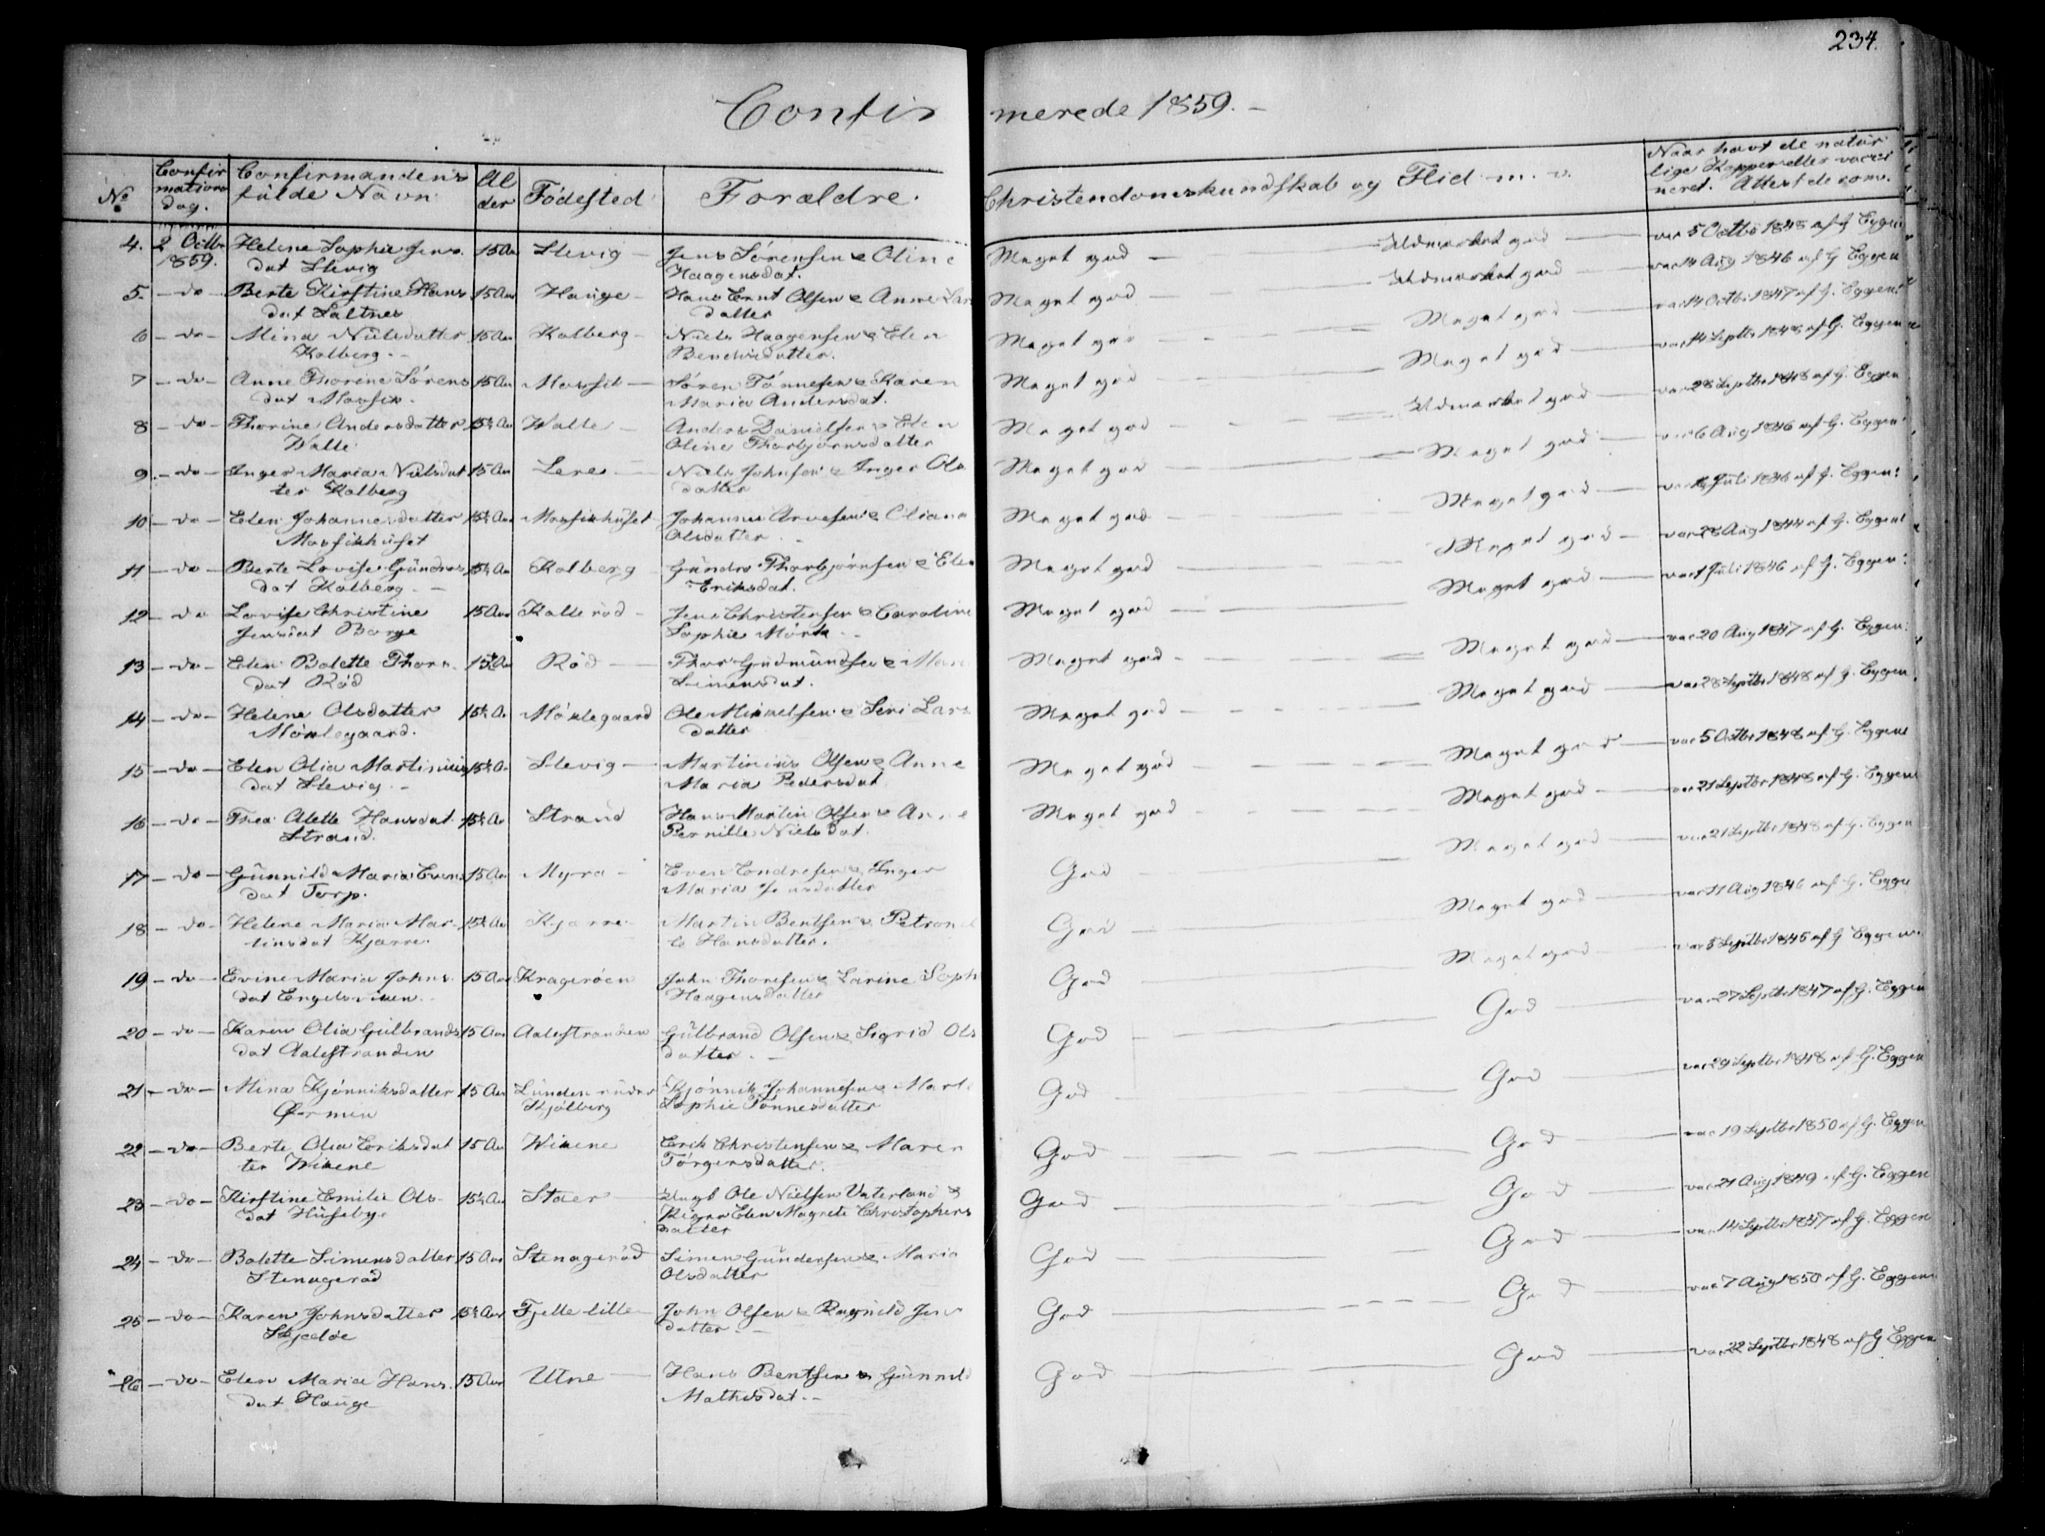 234.
Confirmerede 1859. –
No
Confirmations dag.
Confirmandens fulde Navn
Alder
Födested
Forældre.
Christendomskundskab og Flid m. v.
Naar havt de naturlige Kopper eller vaccineret. Attest derom.
4. 2 Octbr 1859. Helene Sophie Jensdat Slevig 15 Aar Slevig – Jens Sörensen & Oline Haagensdat. Meget god — Udmærket god — vac 5 Octbr 1848 af G Eggen
5. – do – Berte Kirstine Hansdat Saltnes 15 Aar Hauge – Hans Ernt Olsen & Anne Larsdatter Meget god — Udmærket god — vac 14 Aug 1846 af G Eggen
6 – do – Mina Nielsdatter Kolberg. – 15 Aar Kolberg – Niels Haagensen & Elen Bendixdatter. Meget god — Meget god — vac 14 Octbr 1847 af G. Eggen
7 – do – Anne Thorine Sörensdat Mosfik. 15 Aar Mosfik — Sören Tönnesen & Karen Maria Andersdat. Meget god — Meget god — vac 14 Septbr 1848 af G. Eggen
8 – do – Thorine Andersdatter Walle 15½ Aar Walle – Anders Danielsen & Elen Oline Thorbjörnsdatter Meget god — Udmærket god — vac 28 Septbr 1848 af G. Eggen
9. – do – Inger Maria Nielsdatter Kolberg 15 Aar Lere — Niels Johnsen & Inger Olsdatter Meget god — Meget god — vac 6 Aug 1846 af G. Eggen
10 – do – Elen Johannesdatter Mosfikhuset 15½ Aar Mosfikhuset Johannes Arvesen & Oliana Olsdatter. – Meget god — Meget god — Juli 1846 af G. Eggen
11 – do – Berte Lovise Gundersdat Kolberg. – 15½ Aar Kolberg – Gunder Thorbjörnsen & Elen Eriksdat. Meget god — Meget god — vac 28 Aug 1844 af G. Eggen
12 – do Lovise Christine Jensdat Borge 15 Aar Kalleröd – Jens Christensen & Caroline Sophie Mörk – Meget god — Meget god — vac 1 Juli 1846 af G. Eggen
13 – do – Elen Bolette Thorsdat Röd 15½ Aar Röd — Thor Gudmundsen & Maria Simensdat. Meget god — Meget god — vac 20 Aug 1847 af G. Eggen
14 – do – Helene Olsdatter Möklegaard. 15½ A Möklegaard Ole Mikkelsen & Siri Larsdatter Meget god — Meget god — vac 28 Septbr 1848 af G. Eggen
15 – do – Elen Olia Martiniusdat Slevig. – 15½ A Slevig — Martinius Olsen & Anne Maria Pedersdat Meget god — Meget god — vac 5 Octbr 1848 af G. Eggen
16 – do – Thea Alette Hansdat Strand. 15½ Aar Strand Hans Martin Olsen & Anne Pernille Nielsdat. Meget god — Meget god — vac 21 Septbr 1848 af G. Eggen
17 – do – Gunnild Maria Evensdat Torp. 15 Aar Myra – Even Endresen & Inger Maria Jensdatter God — Meget god — vac 21 Septbr 1848 af G. Eggen
18 – do – Helene Maria Martinsdat Kjærre. 15½ Aar Kjærre – Martin Bentsen & Petronille Hansdatter. God — Meget god — vac 11 Aug 1846 af G. Eggen
19 – do – Evine Maria Johnsdat Engelsviken. 15 Aar Krageröen John Thoresen & Larine Soph Haagensdatter God — Meget god — vac 5 Septbr 1845 af G Eggen
20 – do – Karen Olia Gulbrandsdat Aalestranden 15 Aar Aalestranden Gulbrand Olsen & Sigrid Olsdatter. – God — God — vac 27 Septbr 1847 af G. Eggen
21 – do – Mina Kjönniksdatter Örmen 15 Aar Lunden under Kjölberg Kjönnik Johannesen & Marthe Sophie Tönnesdatter God — God — vac 29 Septbr 1848 af G. Eggen
22 – do – Berte Olia Eriksdatter Wikene 15 Aar Wikene Erik Christensen & Maren Törgersdatter. God — God — vac 19 Septbr 1850 af G. Eggen
23 – do – Kirstine Emilie Olsdat Huseby. 15½ Aar Staer — Ungk Ole Nielsen Vaterland & Pigen Elen Magrete Christophersdatter God — God — vac 21 Aug 1849 af G. Eggen
24 – do – Bolette Simensdatter Stenageröd 15 Aar Stenageröd Simen Gundersen & Maria Olsdatter God — God — vac 14 Septbr 1847 af G. Eggen
25 – do – Karen Johnsdatter Skjeldö 15½ Aar Fjelle lille – John Olsen & Ragnild Jensdatter – God — God — vac 7 Aug 1850 af G. Eggen
26 – do – Elen Maria Hansdat Hauge 15 Aar Utne — Hans Bentsen & Gunnild Mathisdat. – God — God — vac 22 Septbr 1848 af G Eggen